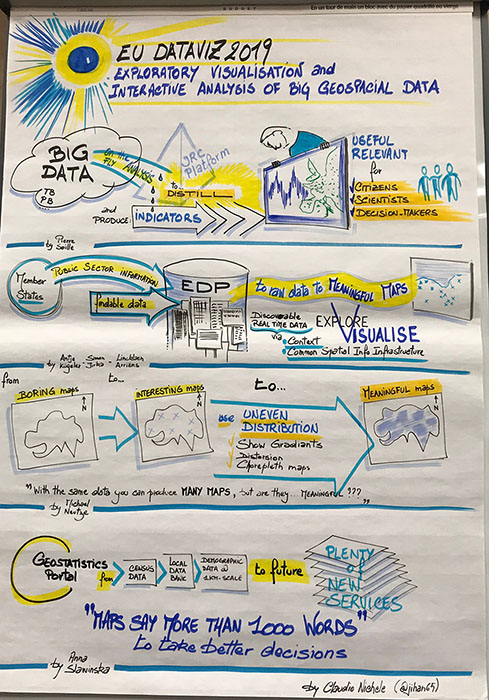 En un tour de main un bloc avec du papier quadrillé au verso
EU DATAVIZ 2019
EXPLORATORY VISUALISATION and
INTERACTIVE ANALYSIS OF BIG GEOSPACIAL DATA
BIG
DATA
TB
PB
on the
FLY ANALYSIS
JRC
Platform
to...
DISTILL
and
PRODUCE
INDICATORS
USEFUL
RELEVANT
for
CITIZENS
SCIENTISTS
DECISION-MAKERS
by Pierre
Soille
Member
States
PUBLIC SECTOR INFORMATION
findable data
EDP
to raw data to MEANINGFUL MAPS
Discoverable
REAL TIME DATA
via
EXPLORE
VISUALISE
Context
Common Spatial Info Infrastructure
by
Antje Kügeler
Simon Jirka
Linchten Arriëns
from
BORING maps
to...
INTERESTING maps
to...
MEANINGFUL maps
N
N
N
USE UNEVEN
DISTRIBUTION
Show Gradiants
Distorsion
Clorepleth maps
"With the same data you can produce MANY MAPS, but are they... MEANINGFUL ???"
by Michael
Neutze
GEOSTATISTICS
Portal
from
CENSUS
DATA
LOCAL
DATA
BANK
DEMOGRAPHIC
DATA @
1KM-SCALE
to future
PLENTY
of
NEW
SERVICES
"MAPS SAY MORE THAN 1000 WORDS"
to take better decisions
by Anna
Slawinska
by Claudio Nichele (@jihan65)